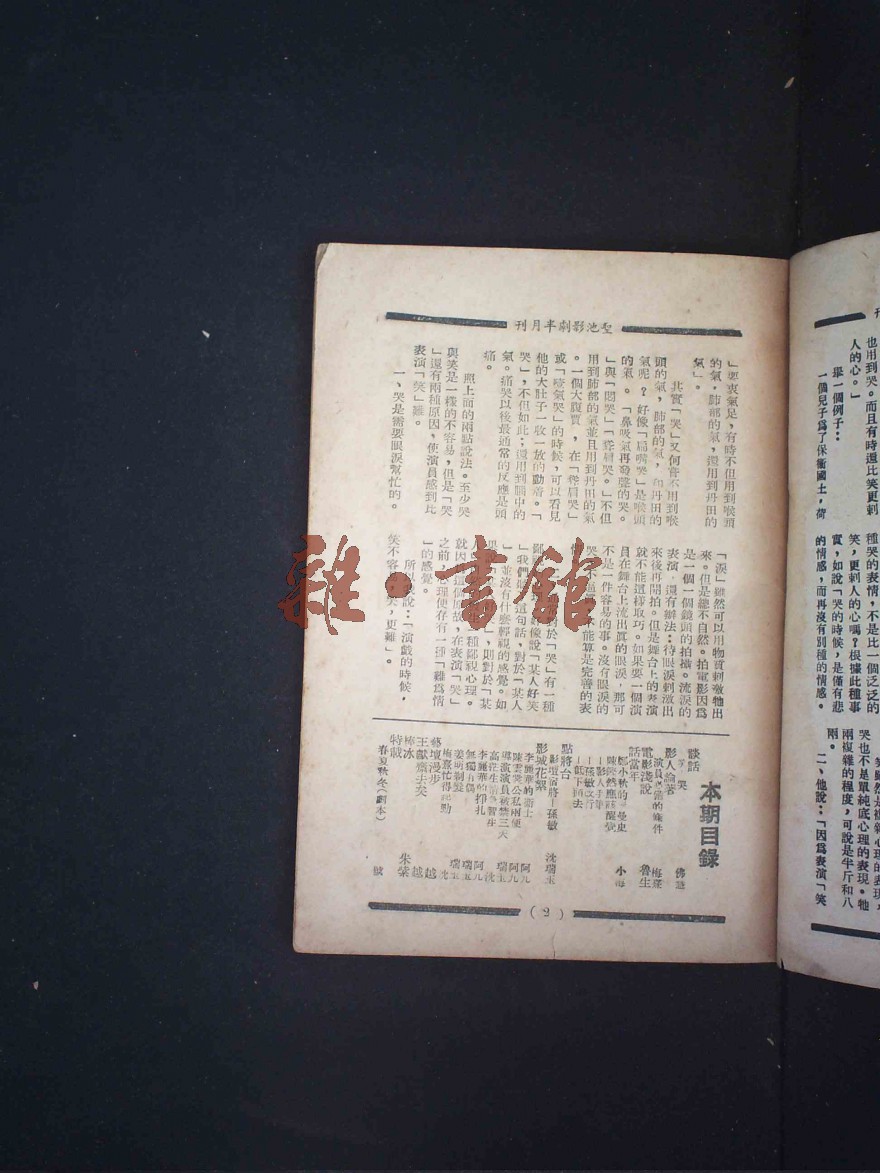 聖池影劇半月刊
也用到哭。而且有時還比笑更刺
人的心。」
舉一個例子：
一個兒子爲了保衛國土，荷
種哭的表情，不是比一個泛泛的
笑，更刺人的心嗎？根據此種事
實，如說「哭的時候，是僅有悲
的情感，而再沒有別種的情感。
哭也不是單純底心理的表現。牠
兩複雜的程度，可說是半斤和八
兩。
二、他說：「因爲表演「笑
」要衷氣足，有時不但用到喉頭
的氣，肺部的氣，還用到丹田的
氣」。
其實「哭」又何嘗不用到喉
頭的氣，肺部的氣，和丹田的
氣呢？好像「扁嘴哭」是喉頭
的氣。「鼻吸氣再發聲的哭。
」與「悶哭」「聳肩哭。」不但
用到肺部的氣並且用到丹田的氣
。一個大腹賈，在「聳肩哭」
或「噎氣哭」的時候，可以看見
他的大肚子一收一放的動着。「
哭」，不但如此；還用到腦中的
氣。痛哭以後最通常的反應是頭
痛。
照上面的兩點說法。至少哭
與笑是一樣的不容易，但是「哭
」還有兩種原因，使演員感到比
表演「笑」難。
一、哭是需要眼淚幫忙的。
「淚」雖然可以用物質刺激牠出
來。但是總不自然。拍電影因爲
是一個一個鏡頭的拍攝。流淚的
表演，還有辦法：待眼淚刺激出
來後再開拍。但是舞台上的表演
就不能這樣取巧。如果要一個演
員在舞台上流出真的眼淚，那可
不是一件容易的事。沒有眼淚的
哭，不逼真，不能算是完善的表
對於「哭」有一種
好像說「某人好笑
」我們這句話，對於「某人
」並沒有什麽輕視的感覺。如
」，則對於「某
種鄙視心理。
就因這個原故，在表演「哭」
之前，心理便存有一種「難爲情
」的感覺。
所以我說：「演戲的時候，
笑不容易，哭，更難」。
本期目錄
談話
哭
影人論著
演員必備的條件 梅熹
電影淺說 魯生
話當年
點將台
影壇宿將—孫敏 沈瑞玉
影城花絮
李麗華的衛士 阿九
陳雲裳公私兩便 阿九
導演演員被禁三天
李麗華的掙扎 阿九
無獨有偶
姜明剃髮
梅熹忙得起勁
藝壇漫步 越
王獻齋失矣 越
棒冰 朱棠
特載
春夏秋冬（劇本）
（2）